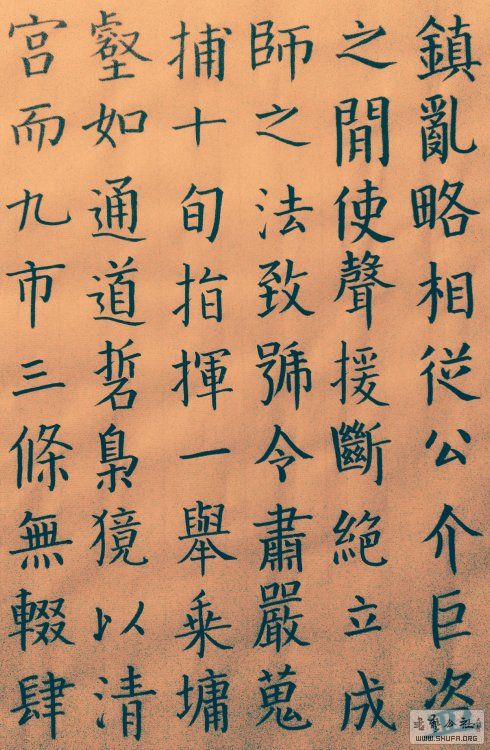 鎮亂略相従公介巨次
之閒使聲援斷絕立成
師之法致號令肅嚴蒐
捕十旬指揮一舉乗墉
壑如通道硩梟獍以清
宮而九市三條無輟肆
WWW.SHUFA.ORG